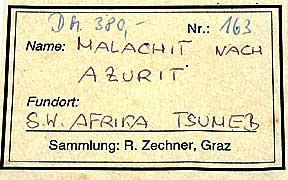 DM. 380,- Nr.: 163
Name: MALACHIT NACH
AZURIT
Fundort:
S.W. AFRIKA TSUMEB
Sammlung: R. Zechner, Graz